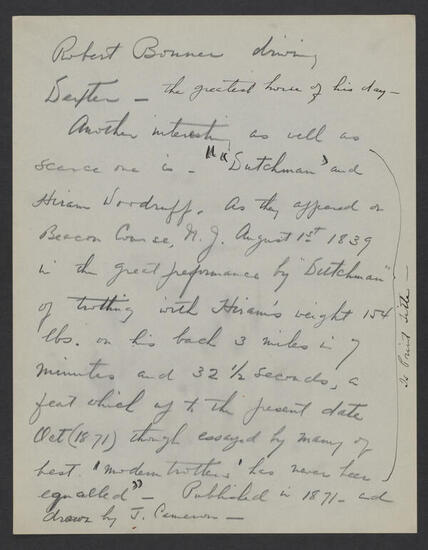 Robert Bonner driving
Dexter — the greatest horse of his day —
Another interesting as well as
scarce one is - "“Dutchman” and
Hiram Woodruff. As they appered on
Beacon Course, N.J. August 1st 1839
in the great preformance by "Dutchman"
of trotting with Hiram's weight 154
lbs. on his back 3 miles in 7
minutes and 32 1/2 seconds, a
feat which up to the present date
Oct (1871) though essayed by many of
best 'modern trotters' has never been
equalled” — Published in 1871 - and
drawn by J. Cameron —
to Print title —